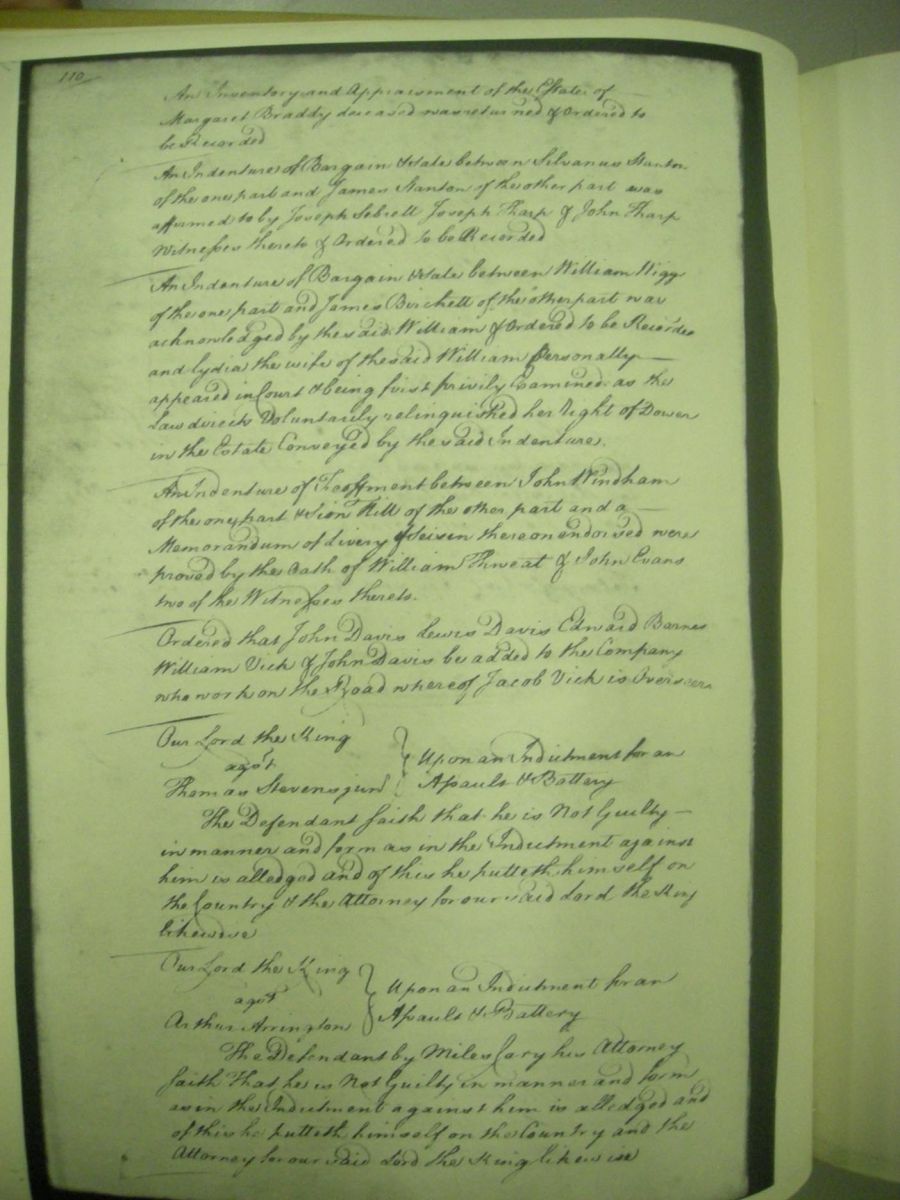 110
An Inventory and Appraisment of the Estate of
Margaret Braddy deceased was returned & Ordered to
be Recorded
An Indenture of Bargain & Sale between Silvanus Stanton
of the one part and James Stanton of the other part was
affirmed to by Joseph Sebrell Joseph Tharp & John Tharp
Witnesses thereto & Ordered to be Recorded
An Indenture of Bargain & Sale between William Wigg
of the one part and James Birchett of the other part was
acknowledged by the said William & Ordered to be Recorded
and Lydia the wife of the said William Personally
appeared in Court & being first privily Examined as the
Law directs Voluntarily relinquished her Right of Dower
in the Estate Conveyed by the said Indenture.
An Indenture of Feoffment between John Windham
of the one part & Sion Hill of the other part and a
Memorandum of Livery & Seisin thereon endorsed were
proved by the Oath of William Threeat & John Evans
two of the Witnesses thereto.
Ordered that John Davis Lewis Davis Edward Barnes
William Vick & John Davis be added to the Company
who work on the Road whereof Jacob Vick is Overseer
Our Lord the King
agst
Upon an Indictment for an
Thomas Stevens junr
Assault & Battery
The Defendant saith that he is Not Guilty
in manner and form as in the Indictment against
him is alledged and of this he putteth himself on
the Country & the Attorney for our said Lord the King
likewise
Our Lord the King
agst
Upon an Indictment for an
Arthur Arrington
Assault & Battery
The Defendant by Miles Cary his Attorney
saith That he is Not Guilty in manner and form
as in the Indictment against him is alledged and
of this he putteth himself on the Country and the
Attorney for our said Lord the King likewise